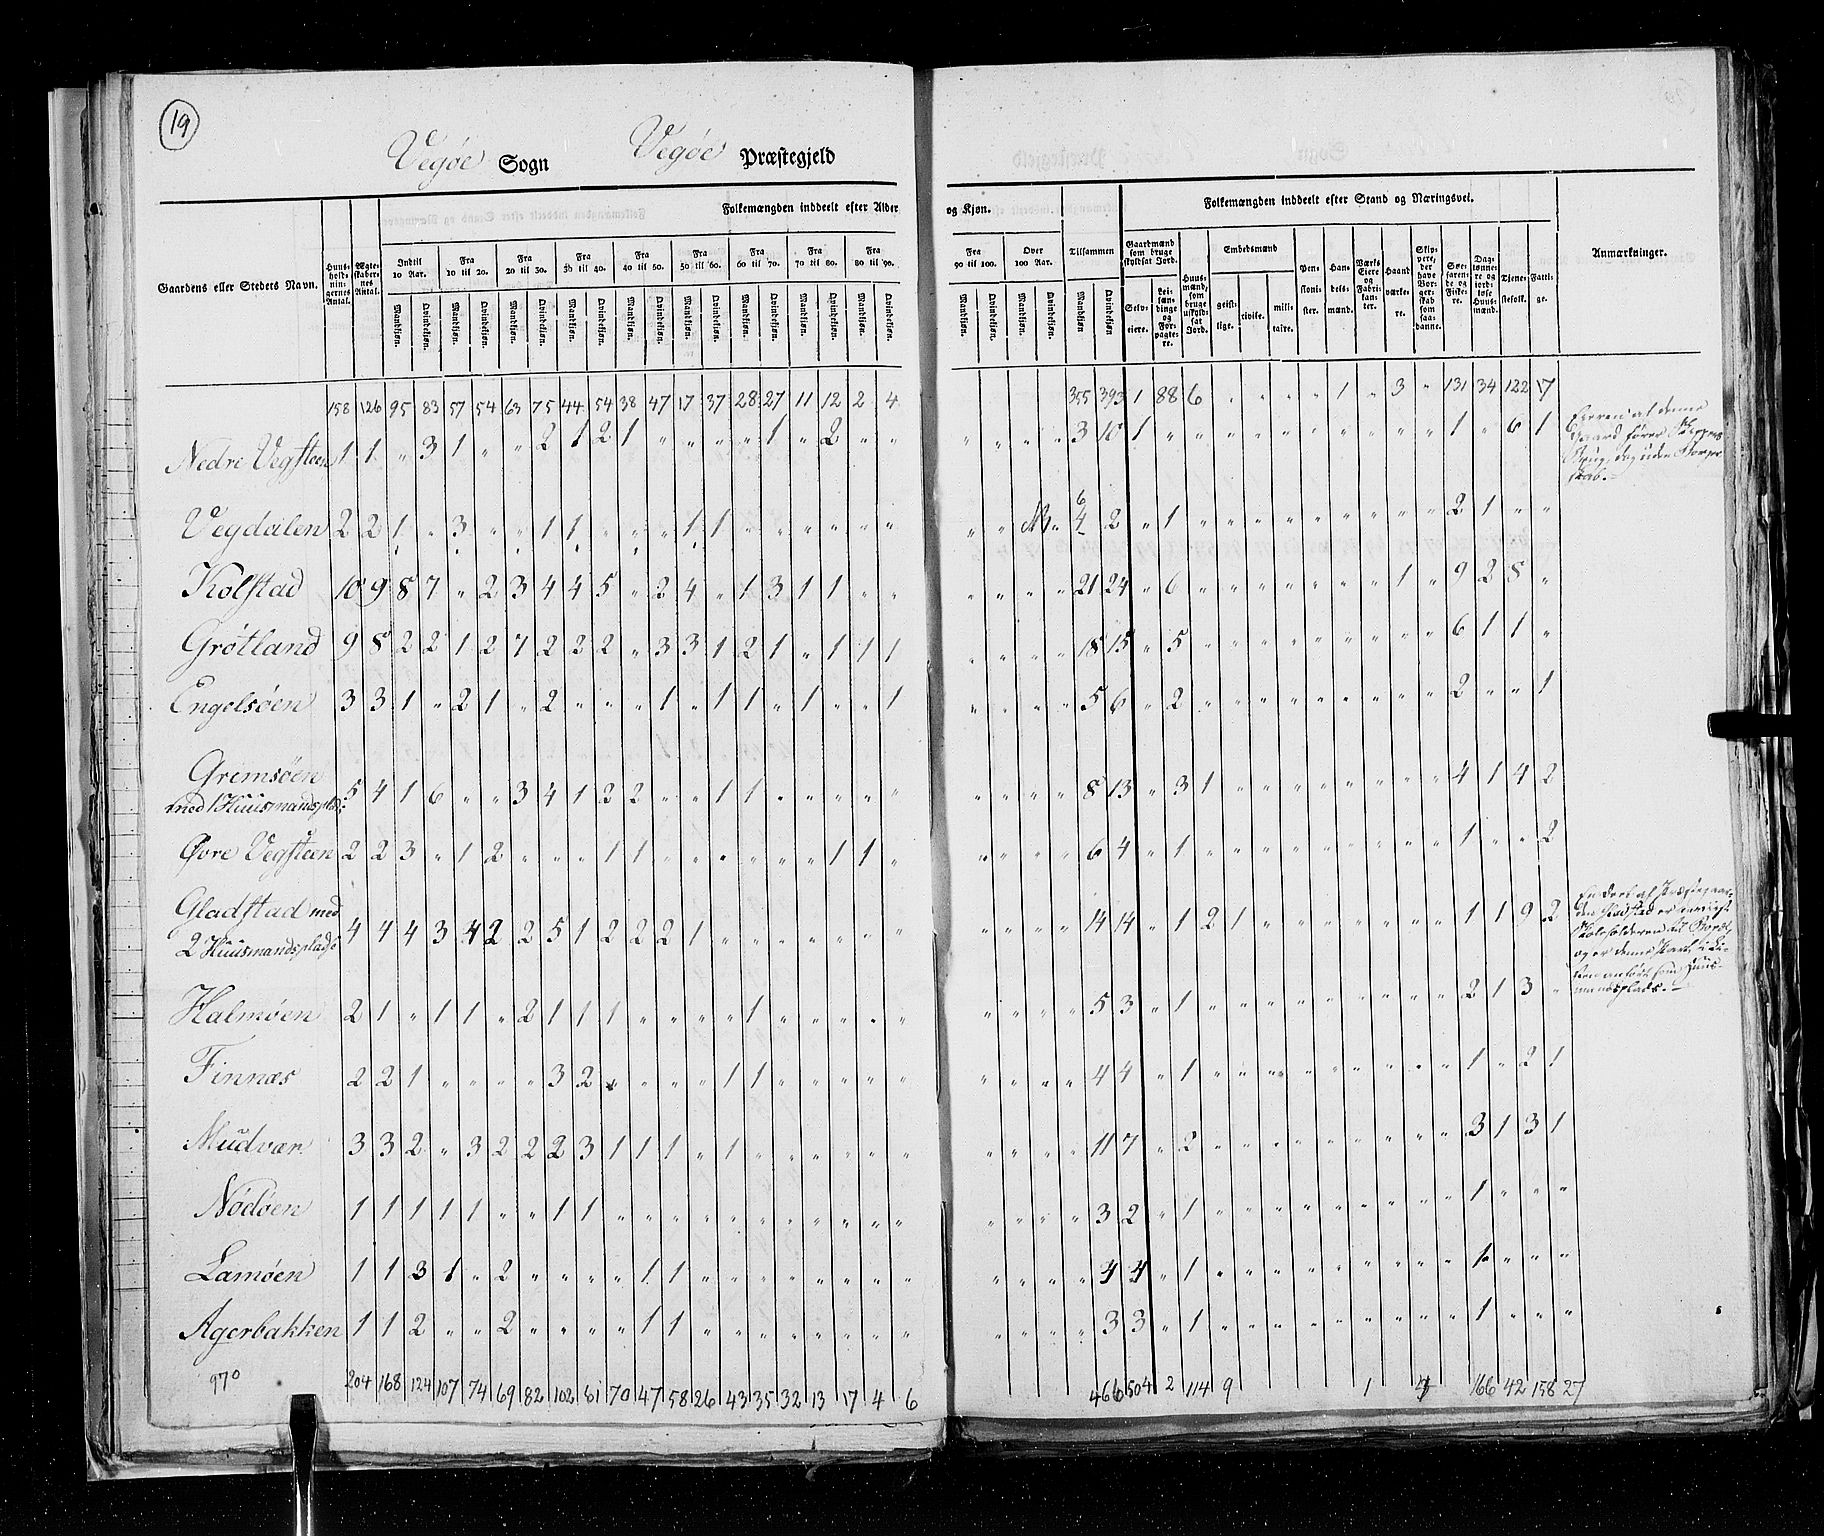 19
Vegøe Sogn Vegøe Præstegjeld
Gaardens eller Stedets Navn.
Huusholdningernes Antal.
Ægteskabernes Antal.
Folkemængden inddeelt efter Alder og Kjøn.
Indtil 10 Aar. Fra 10 til 20. Fra 20 til 30. Fra 30 til 40. Fra 40 til 50. Fra 50 til 60. Fra 60 til 70. Fra 70 til 80. Fra 80 til 90. Fra 90 til 100. Over 100 Aar. Tilsammen
Mandkjøn. Qvindekjøn. Mandkjøn. Qvindekjøn. Mandkjøn. Qvindekjøn. Mandkjøn. Qvindekjøn. Mandkjøn. Qvindekjøn. Mandkjøn. Qvindekjøn. Mandkjøn. Qvindekjøn. Mandkjøn. Qvindekjøn. Mandkjøn. Qvindekjøn. Mandkjøn. Qvindekjøn. Mandkjøn. Qvindekjøn. Mandkjøn. Qvindekjøn.
Folkemængden inddeelt efter Stand og Næringsvei.
Gaardmænd som bruge skyldsat Jord.
Selveiere.
Leilændinge og Forpagtere.
Huusmænd, som bruge uskyldsat Jord.
Embedsmænd
geistlige. civile. militaire.
Pensionister.
Handelsmænd.
Værks Eiere og Fabrikanter.
Haandværkere.
Skippere, der have Borgerskab som saadanne.
Søefarende og Fiskere.
Daglønnere og jordløse Huusmænd.
Tjenestefolk.
Fattige.
Anmærkninger.
158 126 95 83 57 54 63 75 44 54 38 47 17 37 28 27 11 12 2 4 355 393 1 88 6 " " " " 1 " 3 " 131 34 122 17
Nedre Vegsteen 1 1 " 3 1 " " 2 1 2 1 " " " " 1 " 2 " " " " " " 3 10 1 " " " " " " " " " " 1 " 6 1
Eieren af denne
Gaard fører Skippers
Brug, dog uden Borger
skab.
Vegdalen 2 2 1 " 3 " " 1 1 " " " 1 1 " " " " " " " " NB " 6 4 2 " 1 " " " " " " " " " 2 1 " "
Kolstad 10 9 8 7 " 2 3 4 4 5 " 2 4 " 1 3 1 1 " " " " " " 21 24 " 6 " " " " " " " 1 " 9 2 8 "
Grøtland 9 8 2 2 1 2 7 2 2 2 " 3 3 1 2 1 " 1 1 1 " " " " 18 15 " 5 " " " " " " " " " 6 1 1 "
Engelsøen 3 3 1 " 2 1 " 2 " " " 1 " 1 1 " 1 " " 1 " " " " 5 6 " 2 " " " " " " " " " 2 " " 1
Gremsøen
med 1 Huusmandsplads 5 4 1 6 " " 3 4 1 2 2 " " 1 1 " " " " " " " " " 8 13 " 3 1 " " " " " " " " 4 1 4 2
Øvre Vegsteen 2 2 3 " 1 2 " " " 1 1 " " " " " " 1 1 " " " " " 6 4 " 1 " " " " " " " " " 1 " " 2
Gladstad med
2 Huusmandspladse 4 4 4 3 4 2 2 5 1 2 2 2 1 " " " " " " " " " " " 14 14 " 1 2 1 " " " " " " " 1 1 9 2
Halmøen 2 1 " 1 1 " 2 1 1 1 " " " " 1 " " " " " " " " " 5 3 " 1 " " " " " " " " " 2 1 3 "
Finnæs 2 2 1 " " " " 3 2 " " " " 1 1 " " " " " " " " " 4 4 " 1 " " " " " " " " " 1 " 2 1
Mudvær 3 3 2 " 3 2 2 2 3 1 1 1 " 1 " " " " " " " " " " 11 7 " 2 " " " " " " " " " 3 1 3 1
Nødøen 1 1 1 1 1 " " 1 1 " " " " " " " " " " " " " " " 3 2 " 1 " " " " " " " " " 1 " " "
Lamøen 1 1 3 1 " 2 " " " " 1 1 " " " " " " " " " " " " 4 4 " 1 " " " " " " " " " 1 " " "
Agerbakken 1 1 2 " " 2 " " " " 1 1 " " " " " " " " " " " " 3 3 " 1 " " " " " " " " " 1 " " "
970 204 168 124 107 74 69 82 102 61 70 47 58 26 43 35 32 13 17 4 6 466 504 2 114 9 1 4 166 42 158 27